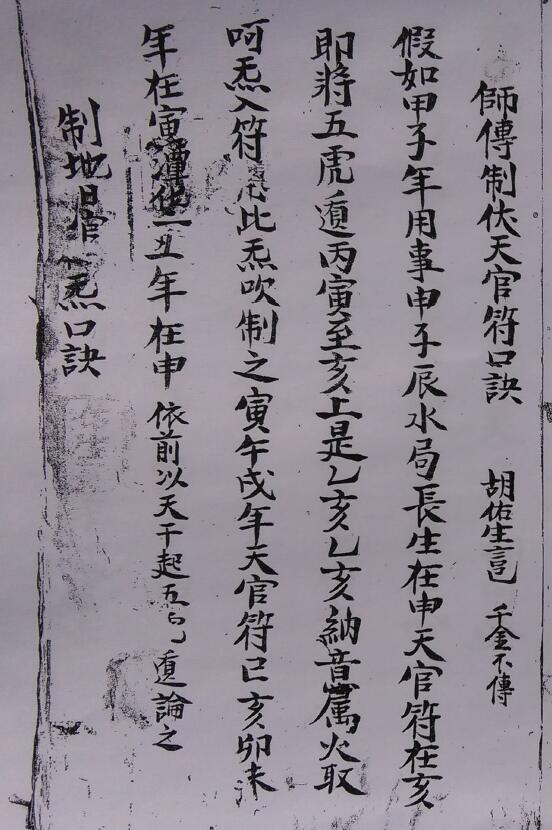 師傳制伏天官符口訣 胡佑生言 千金不傳
假如甲子年用事申子辰水局長生在申天官符在亥
即將五虎遁丙寅至亥上是乙亥乙亥納音属火取
呵炁入符此炁吹制之寅午戌年天官符巳亥卯未
年在寅丑年在申 依前以天干起五 遁論之
制地官炁口訣